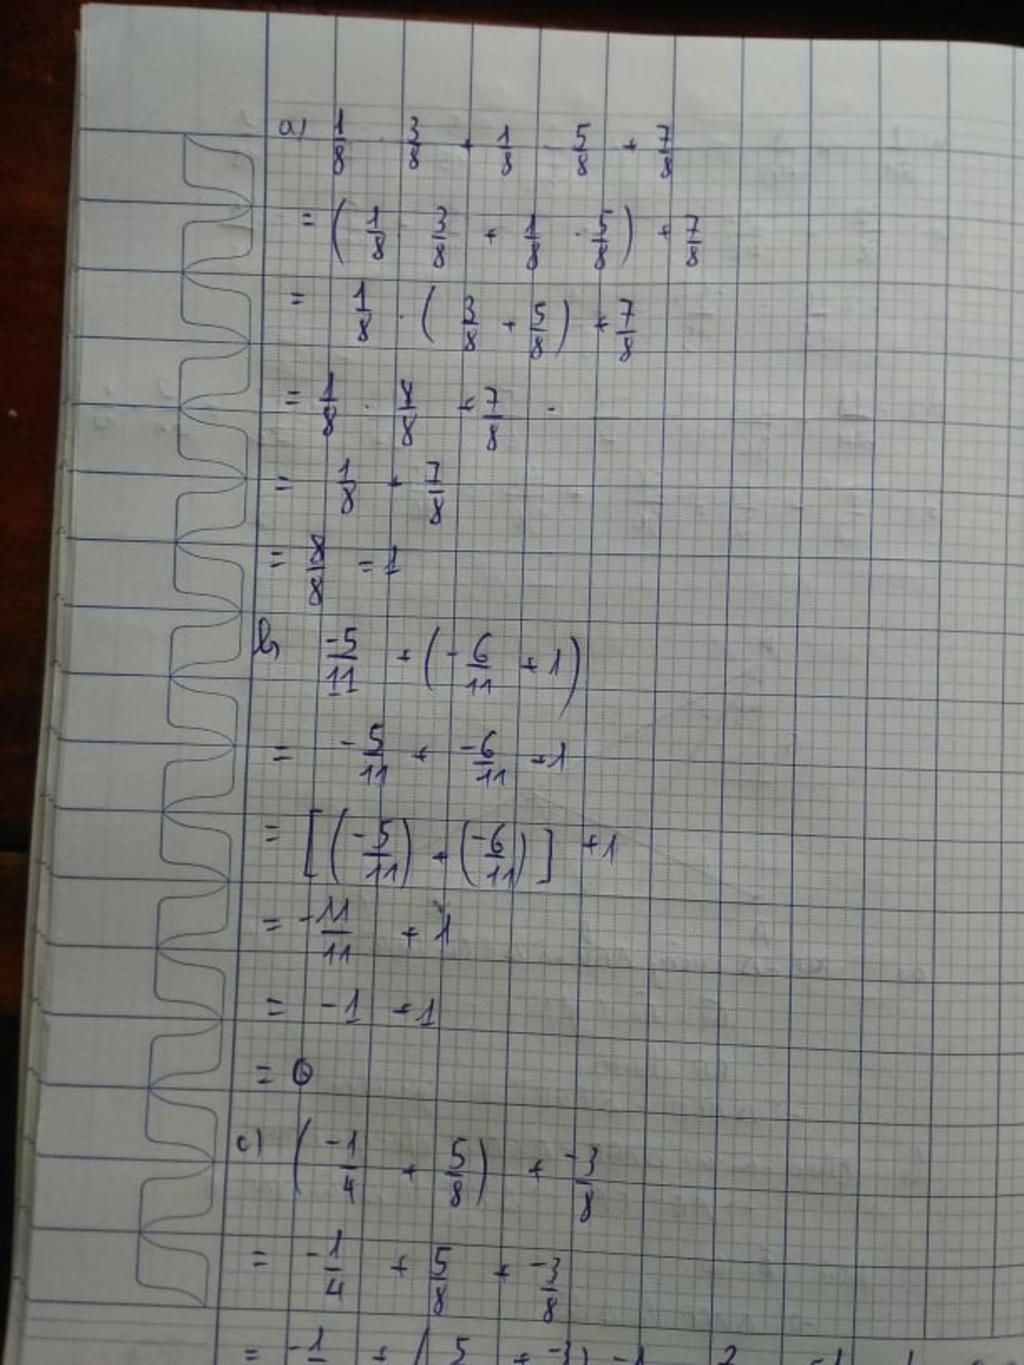 a) 1/8 · 3/8 + 1/8 · 5/8 + 7/8
= (1/8 · 3/8 + 1/8 · 5/8) + 7/8
= 1/8 · (3/8 + 5/8) + 7/8
= 1/8 · 8/8 + 7/8
= 1/8 + 7/8
= 8/8 = 1
b) -5/11 + (-6/11 + 1)
= -5/11 + -6/11 + 1
= [(-5/11) + (-6/11)] + 1
= -11/11 + 1
= -1 + 1
= 0
c) (-1/4 + 5/8) + -3/8
= -1/4 + 5/8 + -3/8
= -1 + (5 + -3)